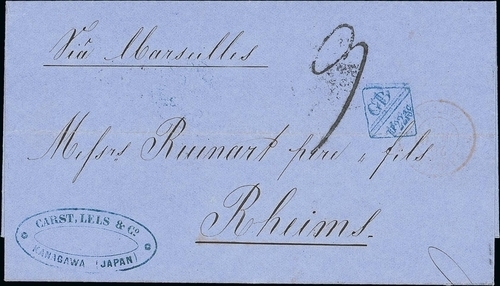 Via Marseilles
9
GB
1F90c
Messrs Ruinart père & fils.
Rheims.
CARST. LELS & Co.
KANAGAWA (JAPAN)